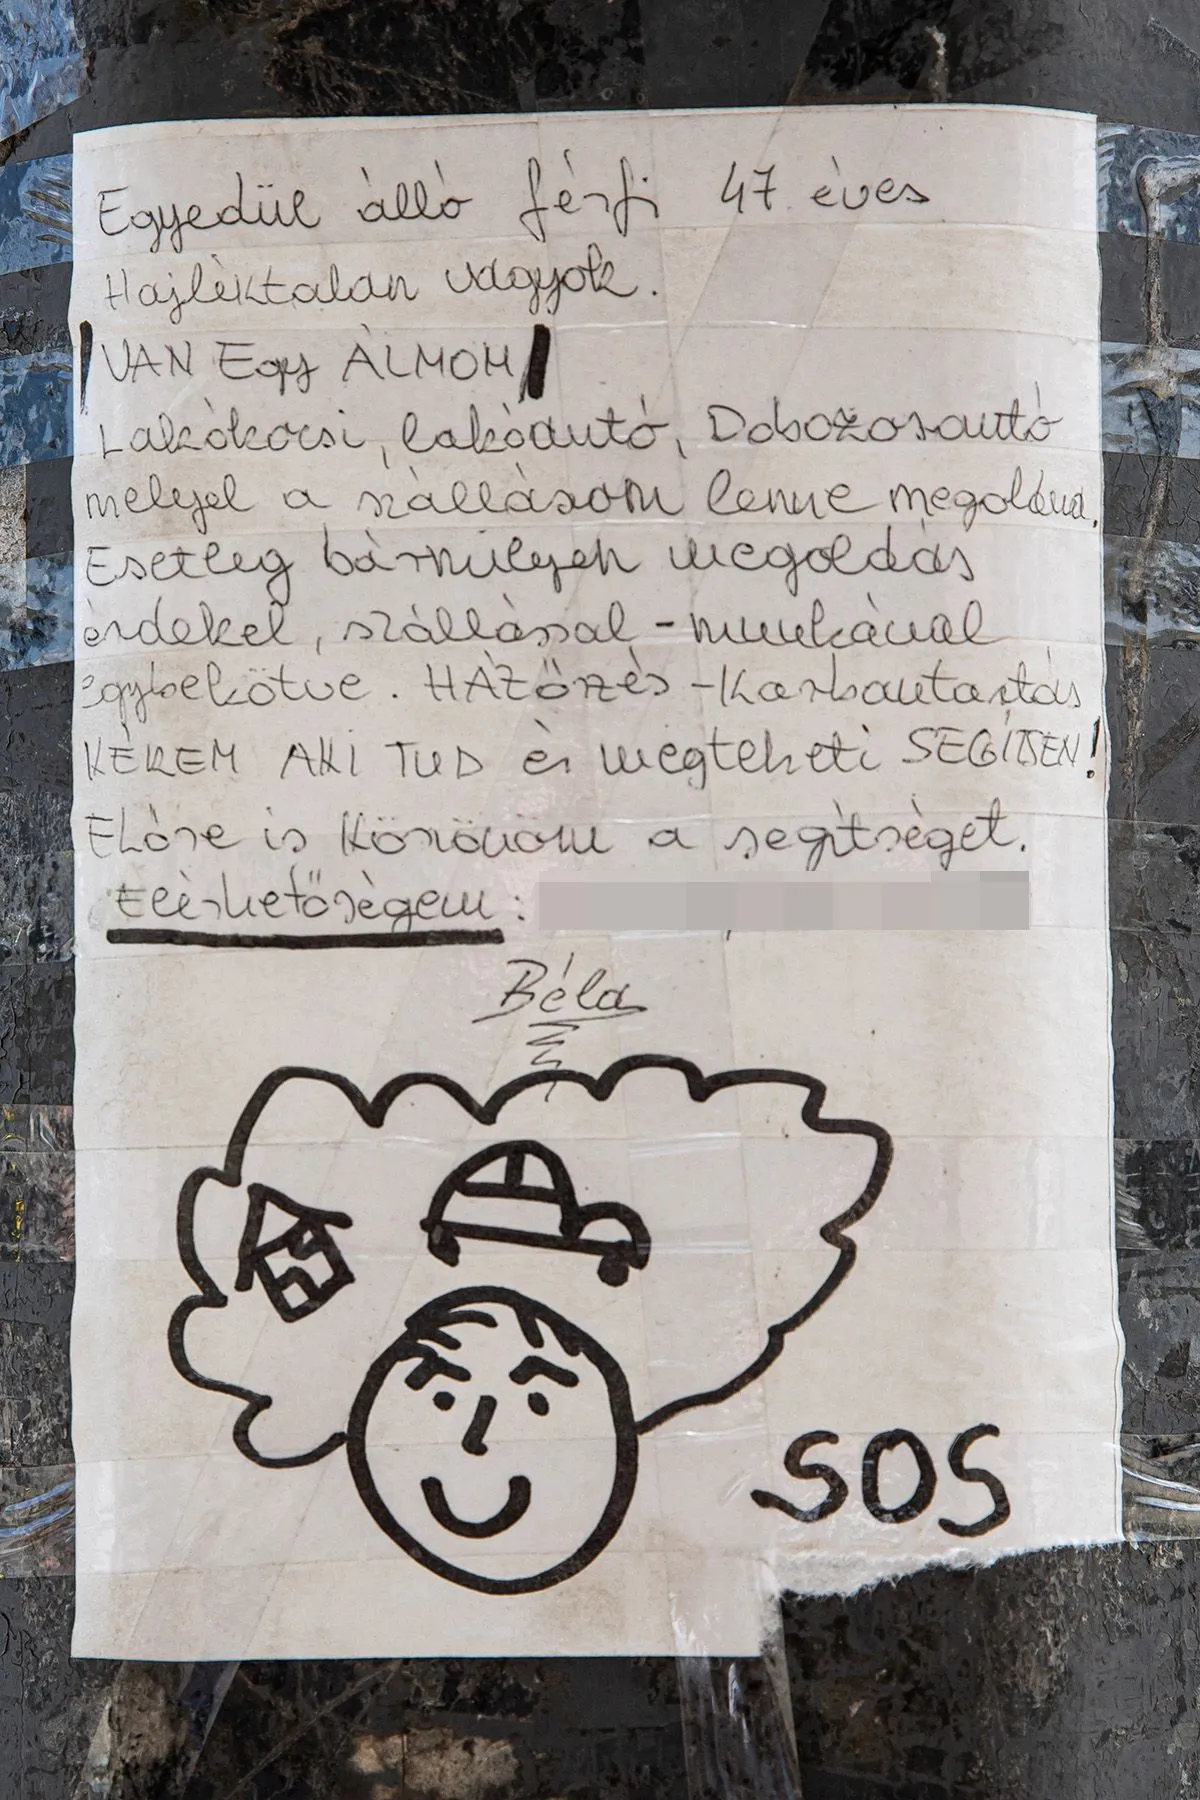 Egyedül álló férfi 47 éves
Hajléktalan vagyok.
VAN Egy ÁLMOM
Lakókocsi, lakóautó, Dobozosautó
melyel a szállásom lenne megoldva.
Esetleg bármilyen megoldás
érdekel, szállással - munkával
egybekötve. HÁZőrzés - Karbantartás
KÉREM AKI TUD és megteheti SEGÍTSEN!
Előre is Köszönöm a segítséget.
Elérhetőségem:
Béla
SOS